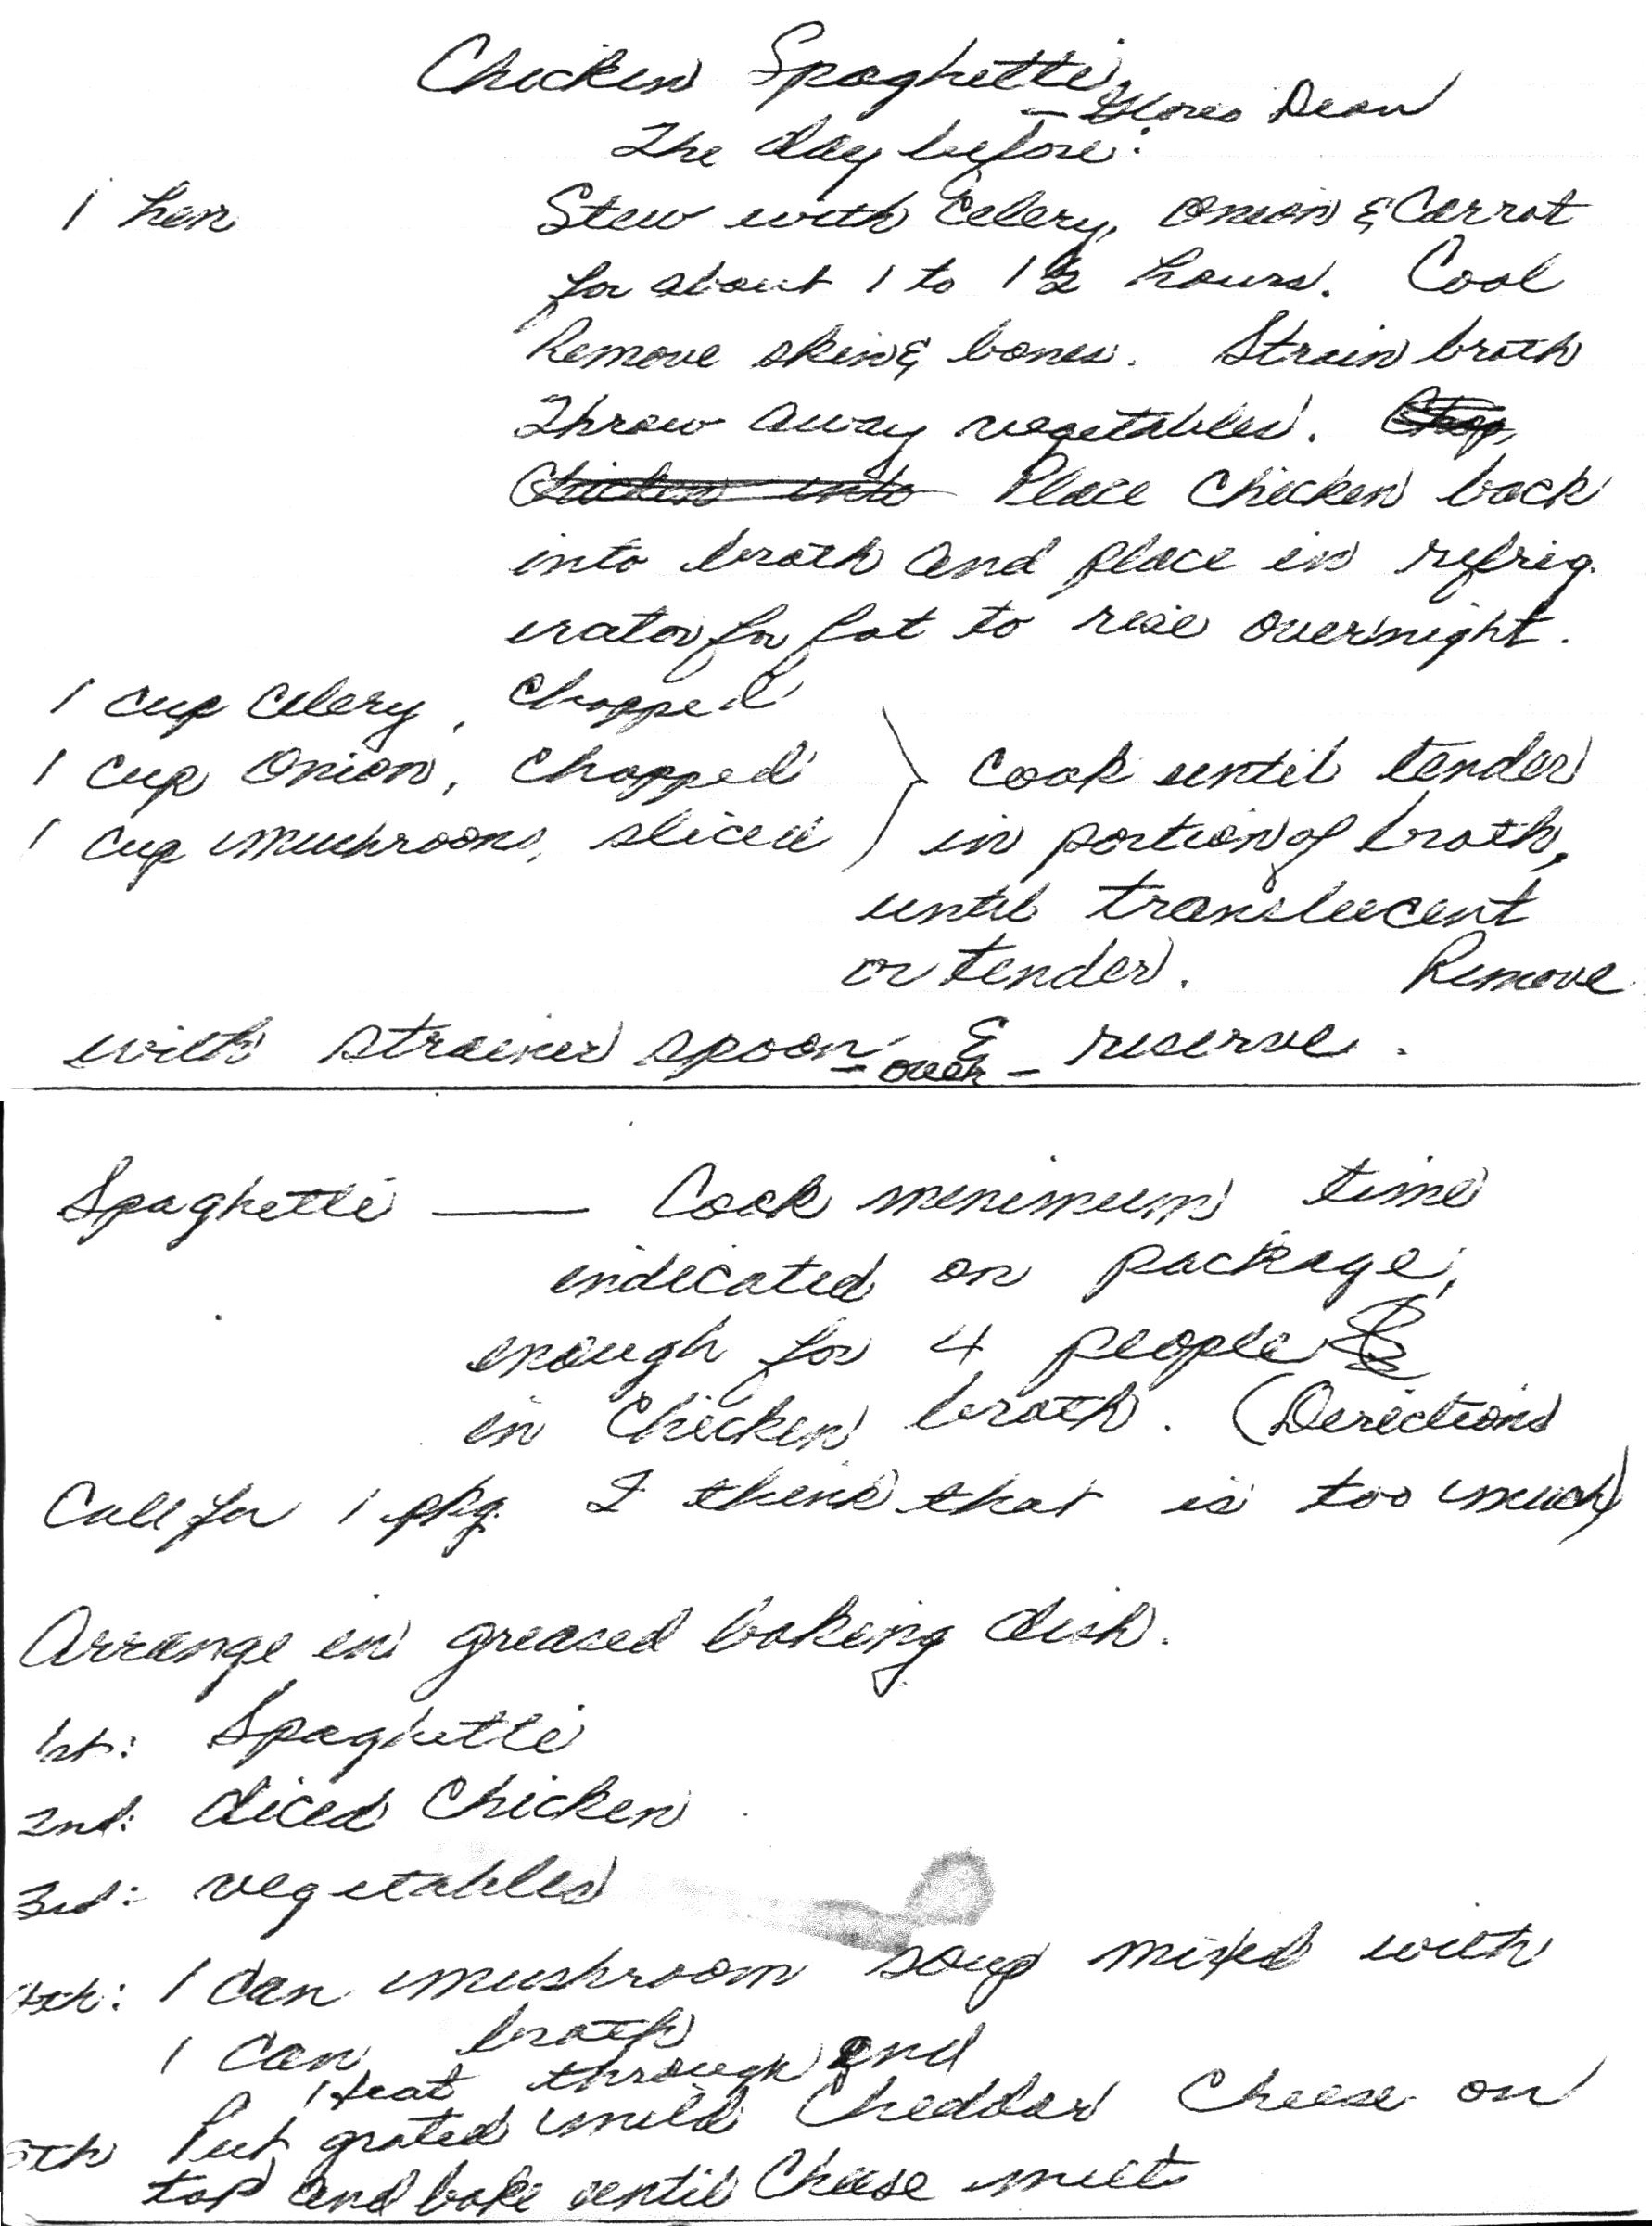 Chicken Spaghetti
— Dean
The day before:
1 hen Stew with Celery, Onion & Carrot
for about 1 to 1½ hours. Cool
Remove skin & bones. Strain broth
Throw away vegetables. Chop
Chicken into Place Chicken back
into broth and place in refrig.
erator for fat to rise overnight.
1 cup Celery, Chopped
1 cup Onion, Chopped Cook until tender
1 cup mushrooms, sliced in portion of broth,
until translucent
or tender. Remove
with strainer spoon & reserve.
- over -
Spaghetti — Cook minimum time
indicated on package,
enough for 4 people
in Chicken broth. (Directions
Call for 1 pkg. I think that is too much)
Arrange in greased baking dish.
1st: Spaghetti
2nd: diced Chicken
3rd: vegetables
4th: 1 can mushroom soup mixed with
1 can broth
Heat through and
5th Put grated mild Cheddar Cheese on
top and bake until Cheese melts